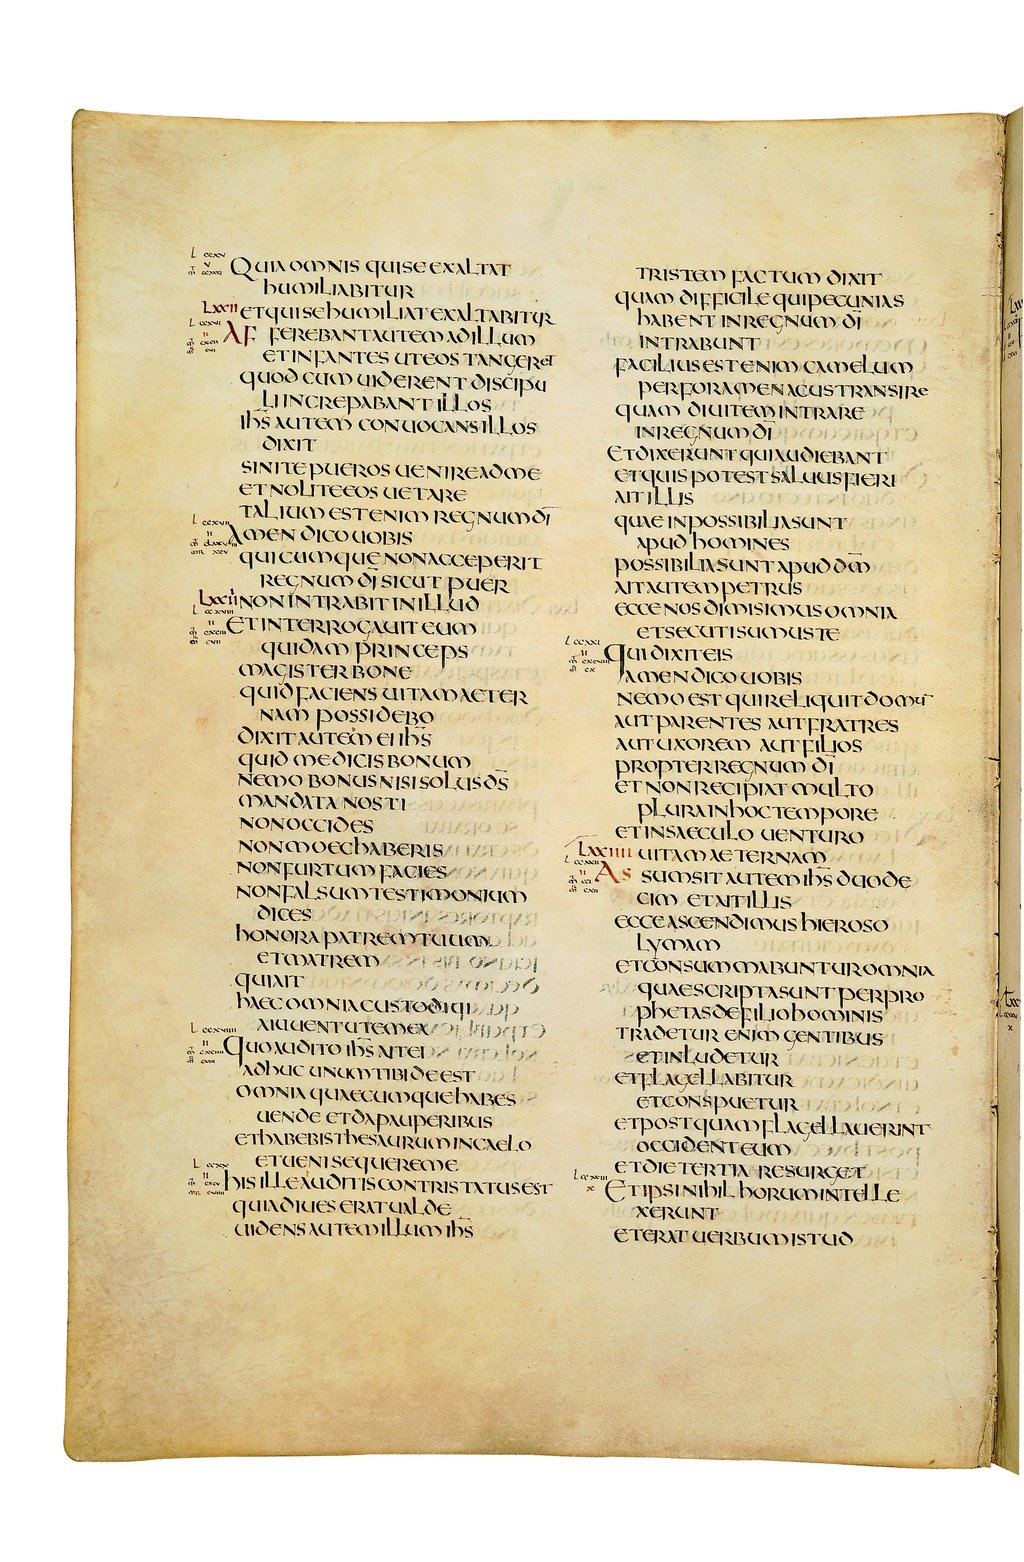 QUIA OMNIS QUI SE EXALTAT
HUMILIABITUR
LXXII ET QUI SE HUMILIAT EXALTABITUR
AF FEREBANT AUTEM AD ILLUM
ET INFANTES UT EOS TANGERET
QUOD CUM UIDERENT DISCIPU
LI INCREPABANT ILLOS
IHS AUTEM CONUOCANS ILLOS
DIXIT
SINITE PUEROS UENIRE AD ME
ET NOLITE EOS UETARE
TALIUM EST ENIM REGNUM DI
AMEN DICO UOBIS
QUICUMQUE NON ACCEPERIT
REGNUM DI SICUT PUER
NON INTRABIT IN ILLUD
ET INTERROGAUIT EUM
QUIDAM PRINCEPS
MAGISTER BONE
QUID FACIENS UITAM AETER
NAM POSSIDEBO
DIXIT AUTEM EI IHS
QUID ME DICIS BONUM
NEMO BONUS NISI SOLUS DS
MANDATA NOSTI
NON OCCIDES
NON MOECHABERIS
NON FURTUM FACIES
NON FALSUM TESTIMONIUM
DICES
HONORA PATREM TUUM
ET MATREM
QUI AIT
HAEC OMNIA CUSTODIUI
A IUUENTUTE MEA
QUO AUDITO IHS AIT EI
ADHUC UNUM TIBI DEEST
OMNIA QUAECUMQUE HABES
UENDE ET DA PAUPERIBUS
ET HABEBIS THESAURUM IN CAELO
ET UENI SEQUERE ME
HIS ILLE AUDITIS CONTRISTATUS EST
QUIA DIUES ERAT UALDE
UIDENS AUTEM ILLUM IHS
TRISTEM FACTUM DIXIT
QUAM DIFFICILE QUI PECUNIAS
HABENT IN REGNUM DI
INTRABUNT
FACILIUS EST ENIM CAMELUM
PER FORAMEN ACUS TRANSIRE
QUAM DIUITEM INTRARE
IN REGNUM DI
ET DIXERUNT QUI AUDIEBANT
ET QUIS POTEST SALUUS FIERI
AIT ILLIS
QUAE INPOSSIBILIA SUNT
APUD HOMINES
POSSIBILIA SUNT APUD DM
AIT AUTEM PETRUS
ECCE NOS DIMISIMUS OMNIA
ET SECUTI SUMUS TE
QUI DIXIT EIS
AMEN DICO UOBIS
NEMO EST QUI RELIQUIT DOMU
AUT PARENTES AUT FRATRES
AUT UXOREM AUT FILIOS
PROPTER REGNUM DI
ET NON RECIPIAT MULTO
PLURA IN HOC TEMPORE
ET IN SAECULO UENTURO
LXXIIII UITAM AETERNAM
AS SUMSIT AUTEM IHS DUODE
CIM ET AIT ILLIS
ECCE ASCENDIMUS HIEROSO
LYMAM
ET CONSUMMABUNTUR OMNIA
QUAE SCRIPTA SUNT PER PRO
PHETAS DE FILIO HOMINIS
TRADETUR ENIM GENTIBUS
ET INLUDETUR
ET FLAGELLABITUR
ET CONSPUETUR
ET POSTQUAM FLAGELLAUERINT
OCCIDENT EUM
ET DIE TERTIA RESURGET
ET IPSI NIHIL HORUM INTELLE
XERUNT
ET ERAT UERBUM ISTUD